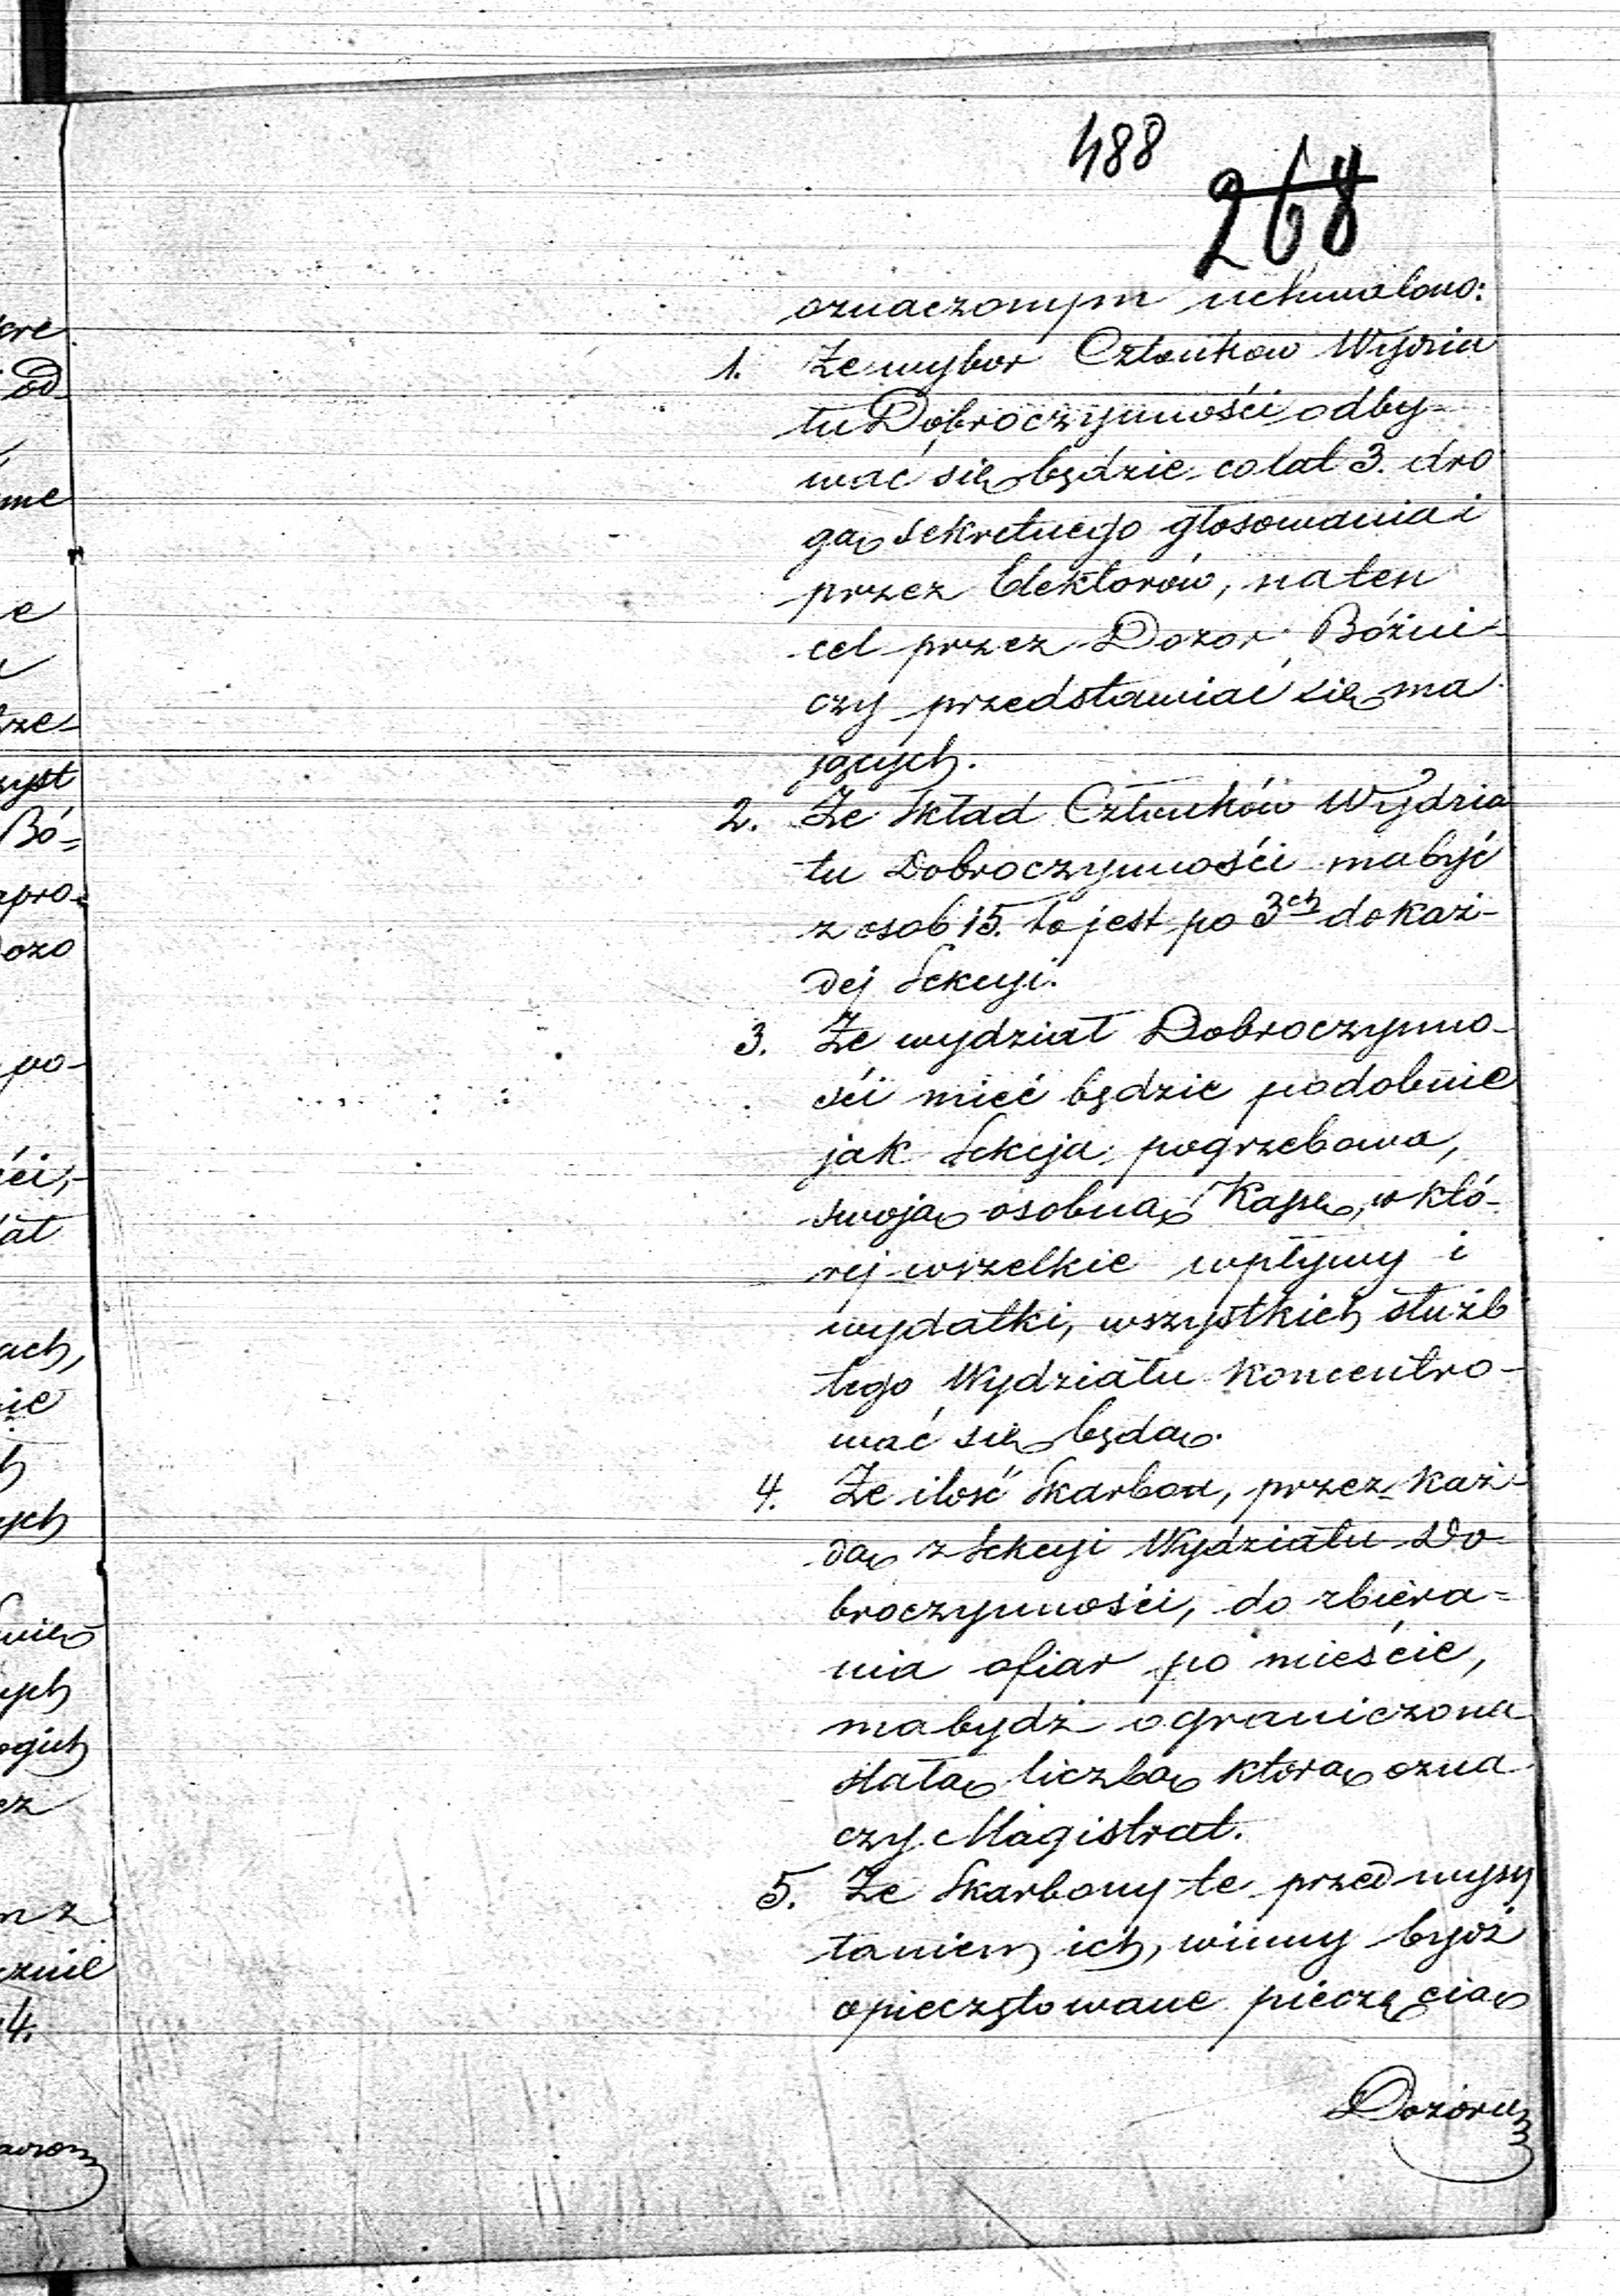 488
268
oznaczonym uchwalono:
1. Że wybor Członkow Wydzia
łu Dobroczynności odby-
wać się będzie co lat 3. dro
gą sekretnego głosowania i
przez Elektorów, na ten
cel przez Dozor Bóżni-
czy przedstawiać się ma
jących.
2. Że Skład Członków Wydzia
łu Dobroczynności ma być
z osob 15. to jest po 3ch do każ-
dej Sekcyi.
3. Że wydział Dobroczynno-
ści mieć będzie podobnie
jak Sekcja pogrzebowa,
swoją osobną Kassę, w któ-
rej wszelkie wpływy i
wydatki, wszystkich służb
tego Wydziału koncentro-
wać się będą.
4. Że ilość Skarbon, przez każ-
dą z Sekcyi Wydziału Do
broczynności, do zbiera=
nia ofiar po mieście,
ma bydź ograniczona
stałą liczbą którą ozna
czy Magistrat.
5. Że Skarbony te przed wysy
łaniem ich, winny bydź
opieczętowane pieczęcią
Dozoru
kre
od
me
e
rze-
zyst
Bó=
apro=
Dozo
po-
ści,-
ach,
nie
h
ych
ych
ogich
ez
m z
cznie
4.